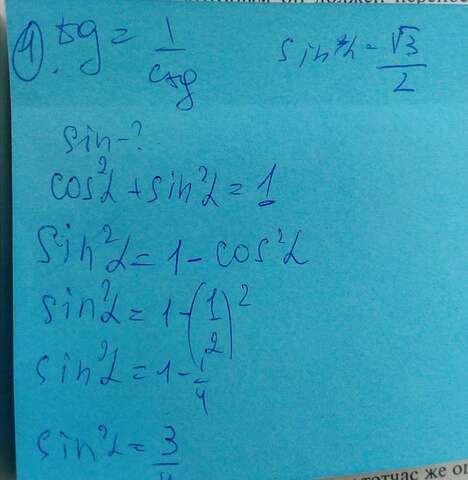 4. tg = 1/ctg
sin α = √3/2
sin-?
cos²α + sin²α = 1
sin²α = 1 - cos²α
sin²α = 1 - (1/2)²
sin²α = 1 - 1/4
sin²α = 3/4
тотчас же